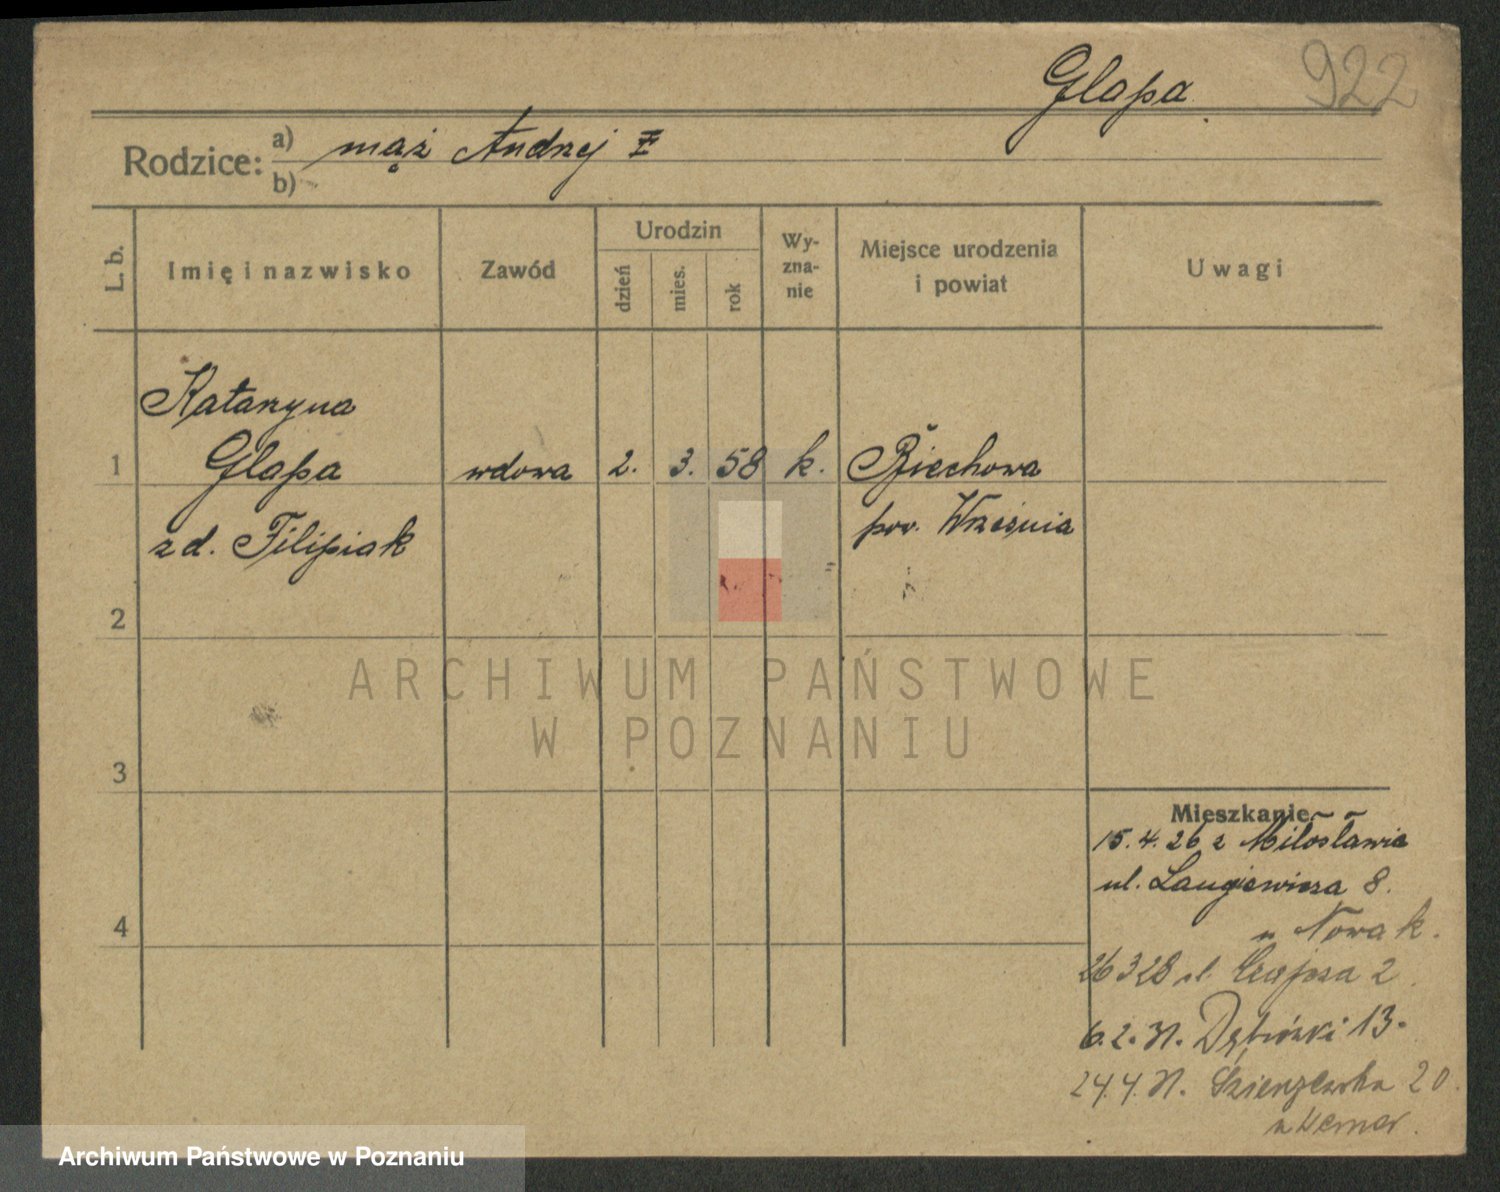 Glapa
922
Rodzice: a) mąż Andrzej
b)
L. b.
Imię i nazwisko
Zawód
Urodzin
dzień
mies.
rok
Wy-
zna-
nie
Miejsce urodzenia
i powiat
Uwagi
Katarzyna
1 Glapa wdowa 2. 3. 58 k. Biechowa
zd. Filipiak pow. Września
2
ARCHIWUM PAŃSTWOWE
W POZNANIU
3
Mieszkanie
15.4.26 z Miłosławia
ul. Langiewicza 8.
u Nowak.
4
26 3 28 ul. Czajcza 2
6.2.31. Dąbrówki 13.
24.4.31. 20
Archiwum Państwowe w Poznaniu